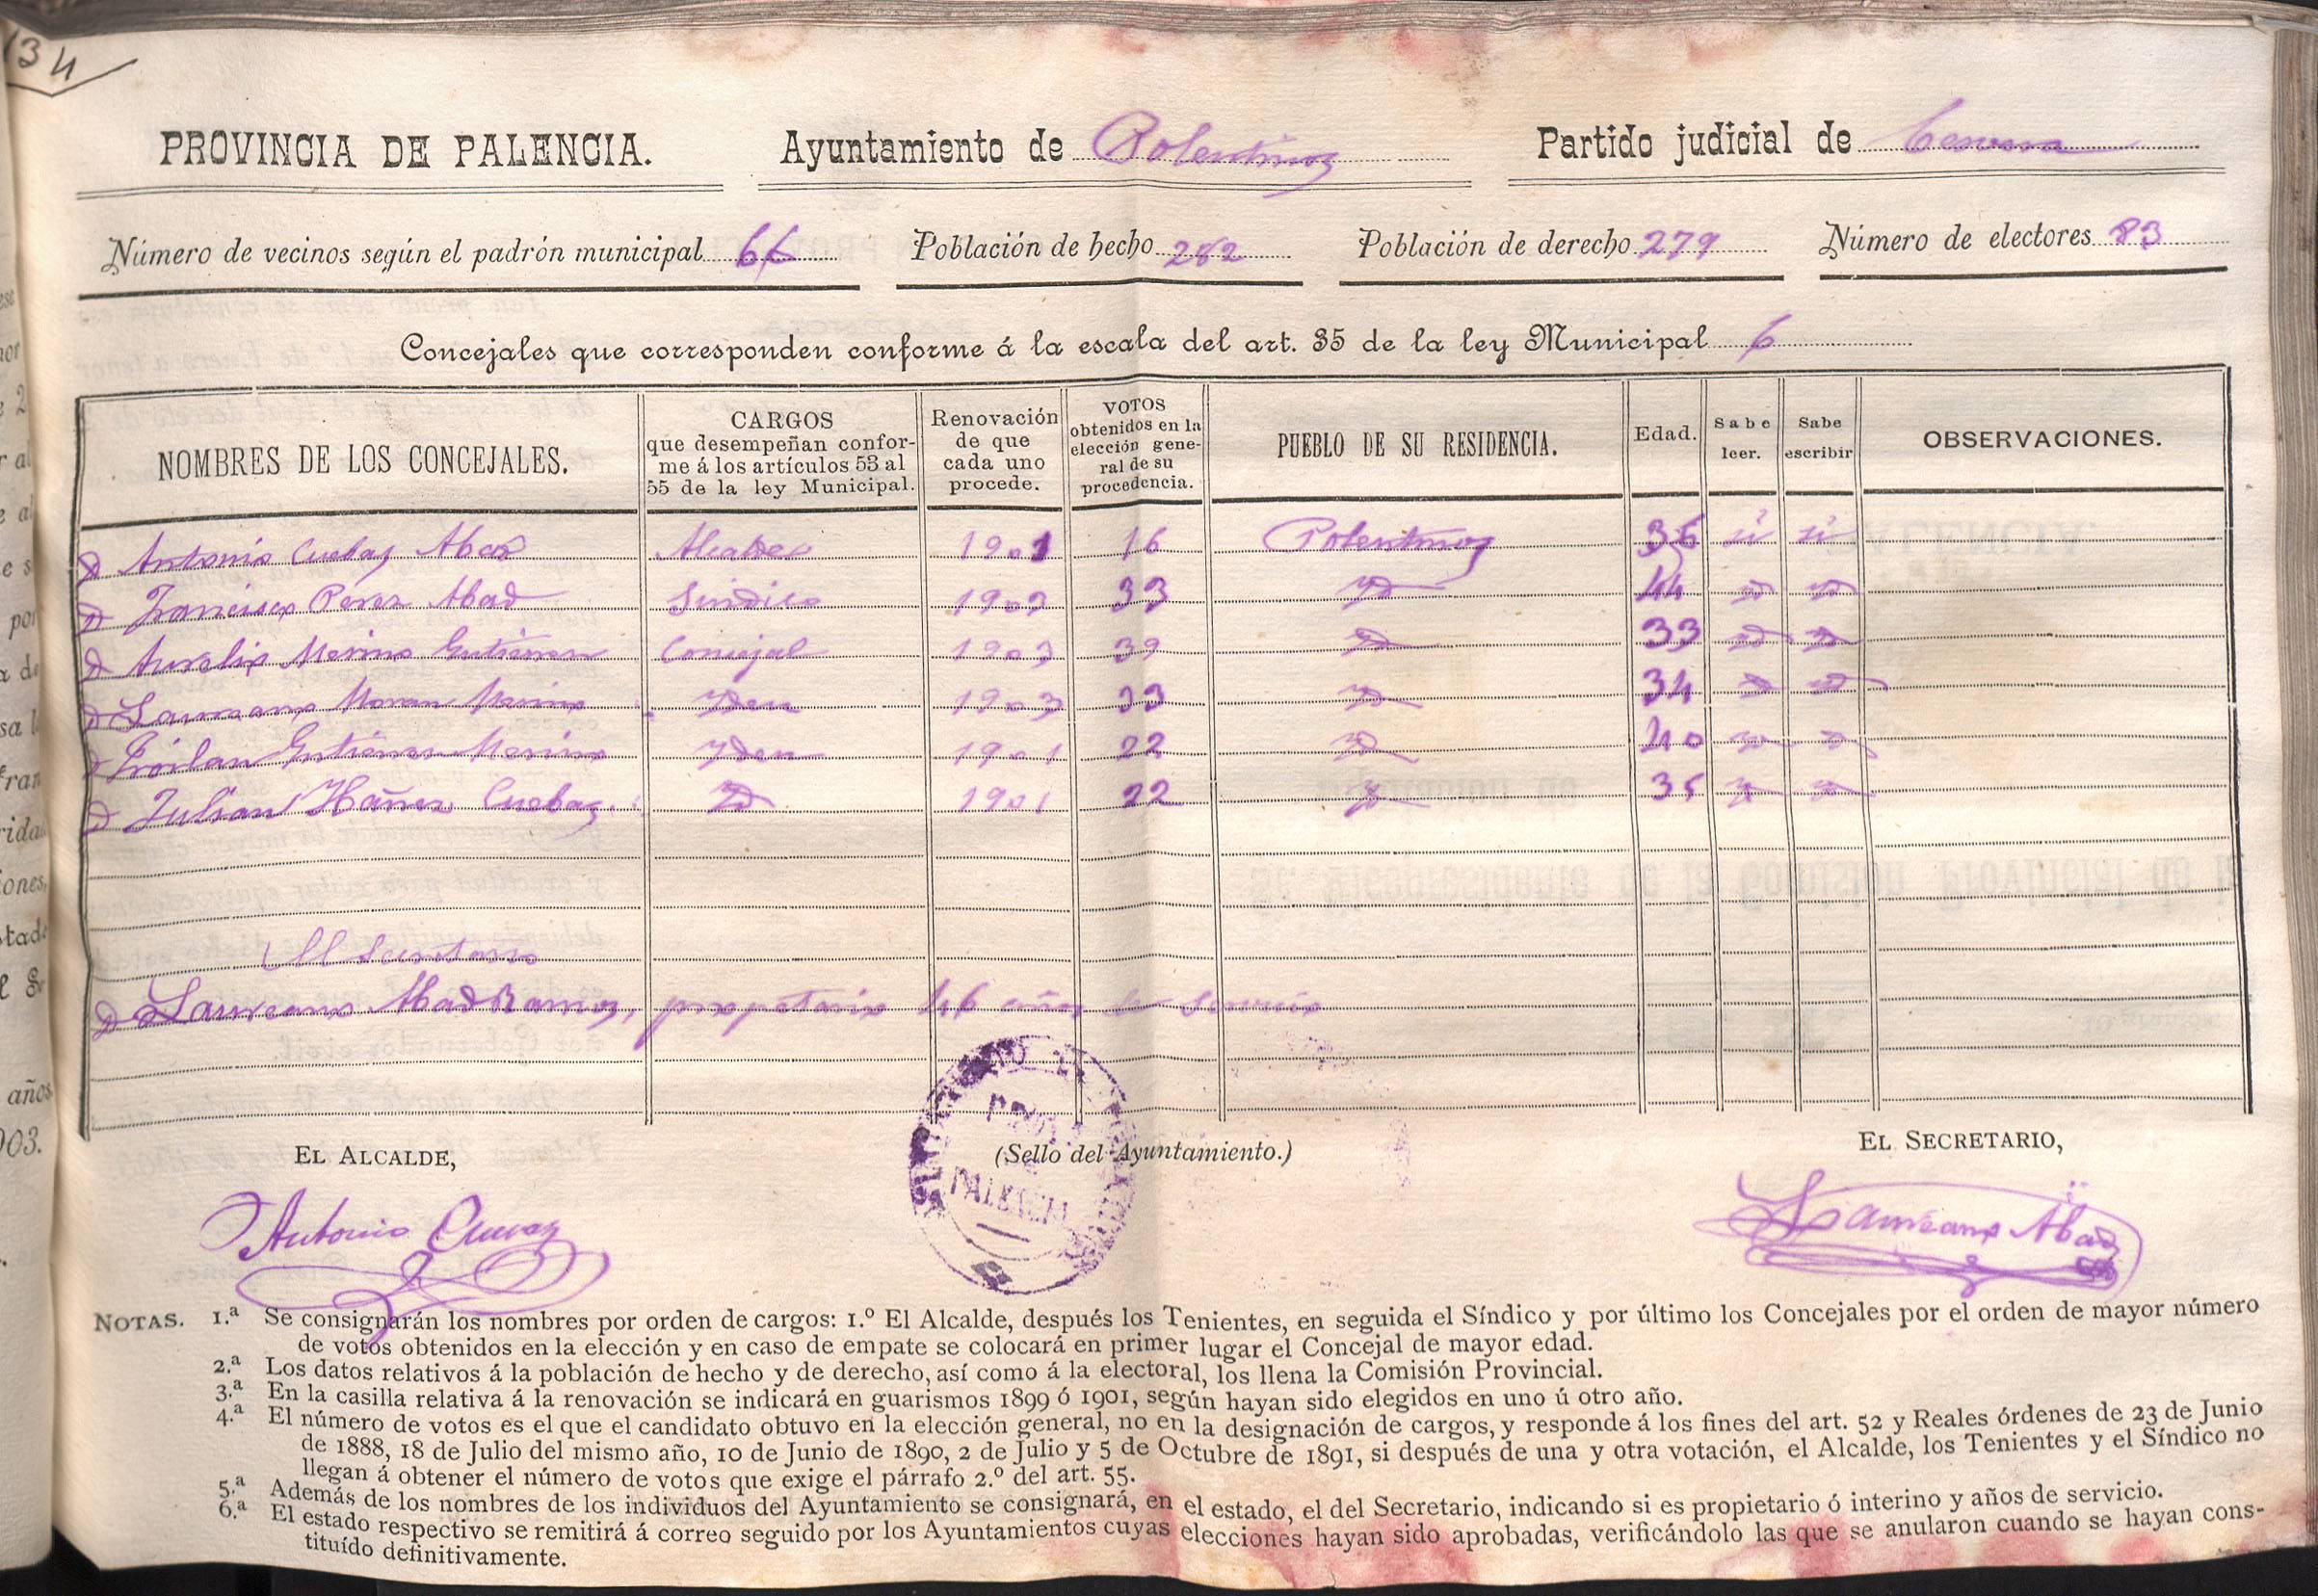 134
PROVINCIA DE PALENCIA. Ayuntamiento de Polentinos Partido judicial de Cervera
Número de vecinos según el padrón municipal 66 Población de hecho 282 Población de derecho 279 Número de electores 83
Concejales que corresponden conforme á la escala del art. 35 de la ley Municipal 6
NOMBRES DE LOS CONCEJALES. CARGOS que desempeñan conforme á los artículos 53 al 55 de la ley Municipal. Renovación de que cada uno procede. VOTOS obtenidos en la elección general de su procedencia. PUEBLO DE SU RESIDENCIA. Edad. Sabe leer. Sabe escribir OBSERVACIONES.
D Antonio Cuebas Abad Alcalde 1901 16 Polentinos 36 si si
D Francisco Perez Abad Sindico 1903 33 Yd 44 Yd Yd
D Aurelio Merino Gutierrez Concejal 1903 39 Yd 33 Yd Yd
D Laureano Moran Merino Yden 1903 33 Yd 34 Yd Yd
D Froilan Gutierrez Merino Yden 1901 22 Yd 40 Yd Yd
D Julian Ybáñez Cuebas Yd 1901 22 Yd 35 Yd Yd
El Secretario
D Laureano Abad Ramos, propetario 46 años de servicio
EL ALCALDE, (Sello del Ayuntamiento.) EL SECRETARIO,
AYUNTAMIENTO
PALENCIA
Antonio Cuevas Laureano Abad
NOTAS. 1.ª Se consignarán los nombres por orden de cargos: 1.º El Alcalde, después los Tenientes, en seguida el Síndico y por último los Concejales por el orden de mayor número
de votos obtenidos en la elección y en caso de empate se colocará en primer lugar el Concejal de mayor edad.
2.ª Los datos relativos á la población de hecho y de derecho, así como á la electoral, los llena la Comisión Provincial.
3.ª En la casilla relativa á la renovación se indicará en guarismos 1899 ó 1901, según hayan sido elegidos en uno ú otro año.
4.ª El número de votos es el que el candidato obtuvo en la elección general, no en la designación de cargos, y responde á los fines del art. 52 y Reales órdenes de 23 de Junio
de 1888, 18 de Julio del mismo año, 10 de Junio de 1890, 2 de Julio y 5 de Octubre de 1891, si después de una y otra votación, el Alcalde, los Tenientes y el Síndico no
llegan á obtener el número de votos que exige el párrafo 2.º del art. 55.
5.ª Además de los nombres de los individuos del Ayuntamiento se consignará, en el estado, el del Secretario, indicando si es propietario ó interino y años de servicio.
6.ª El estado respectivo se remitirá á correo seguido por los Ayuntamientos cuyas elecciones hayan sido aprobadas, verificándolo las que se anularon cuando se hayan cons-
tituído definitivamente.